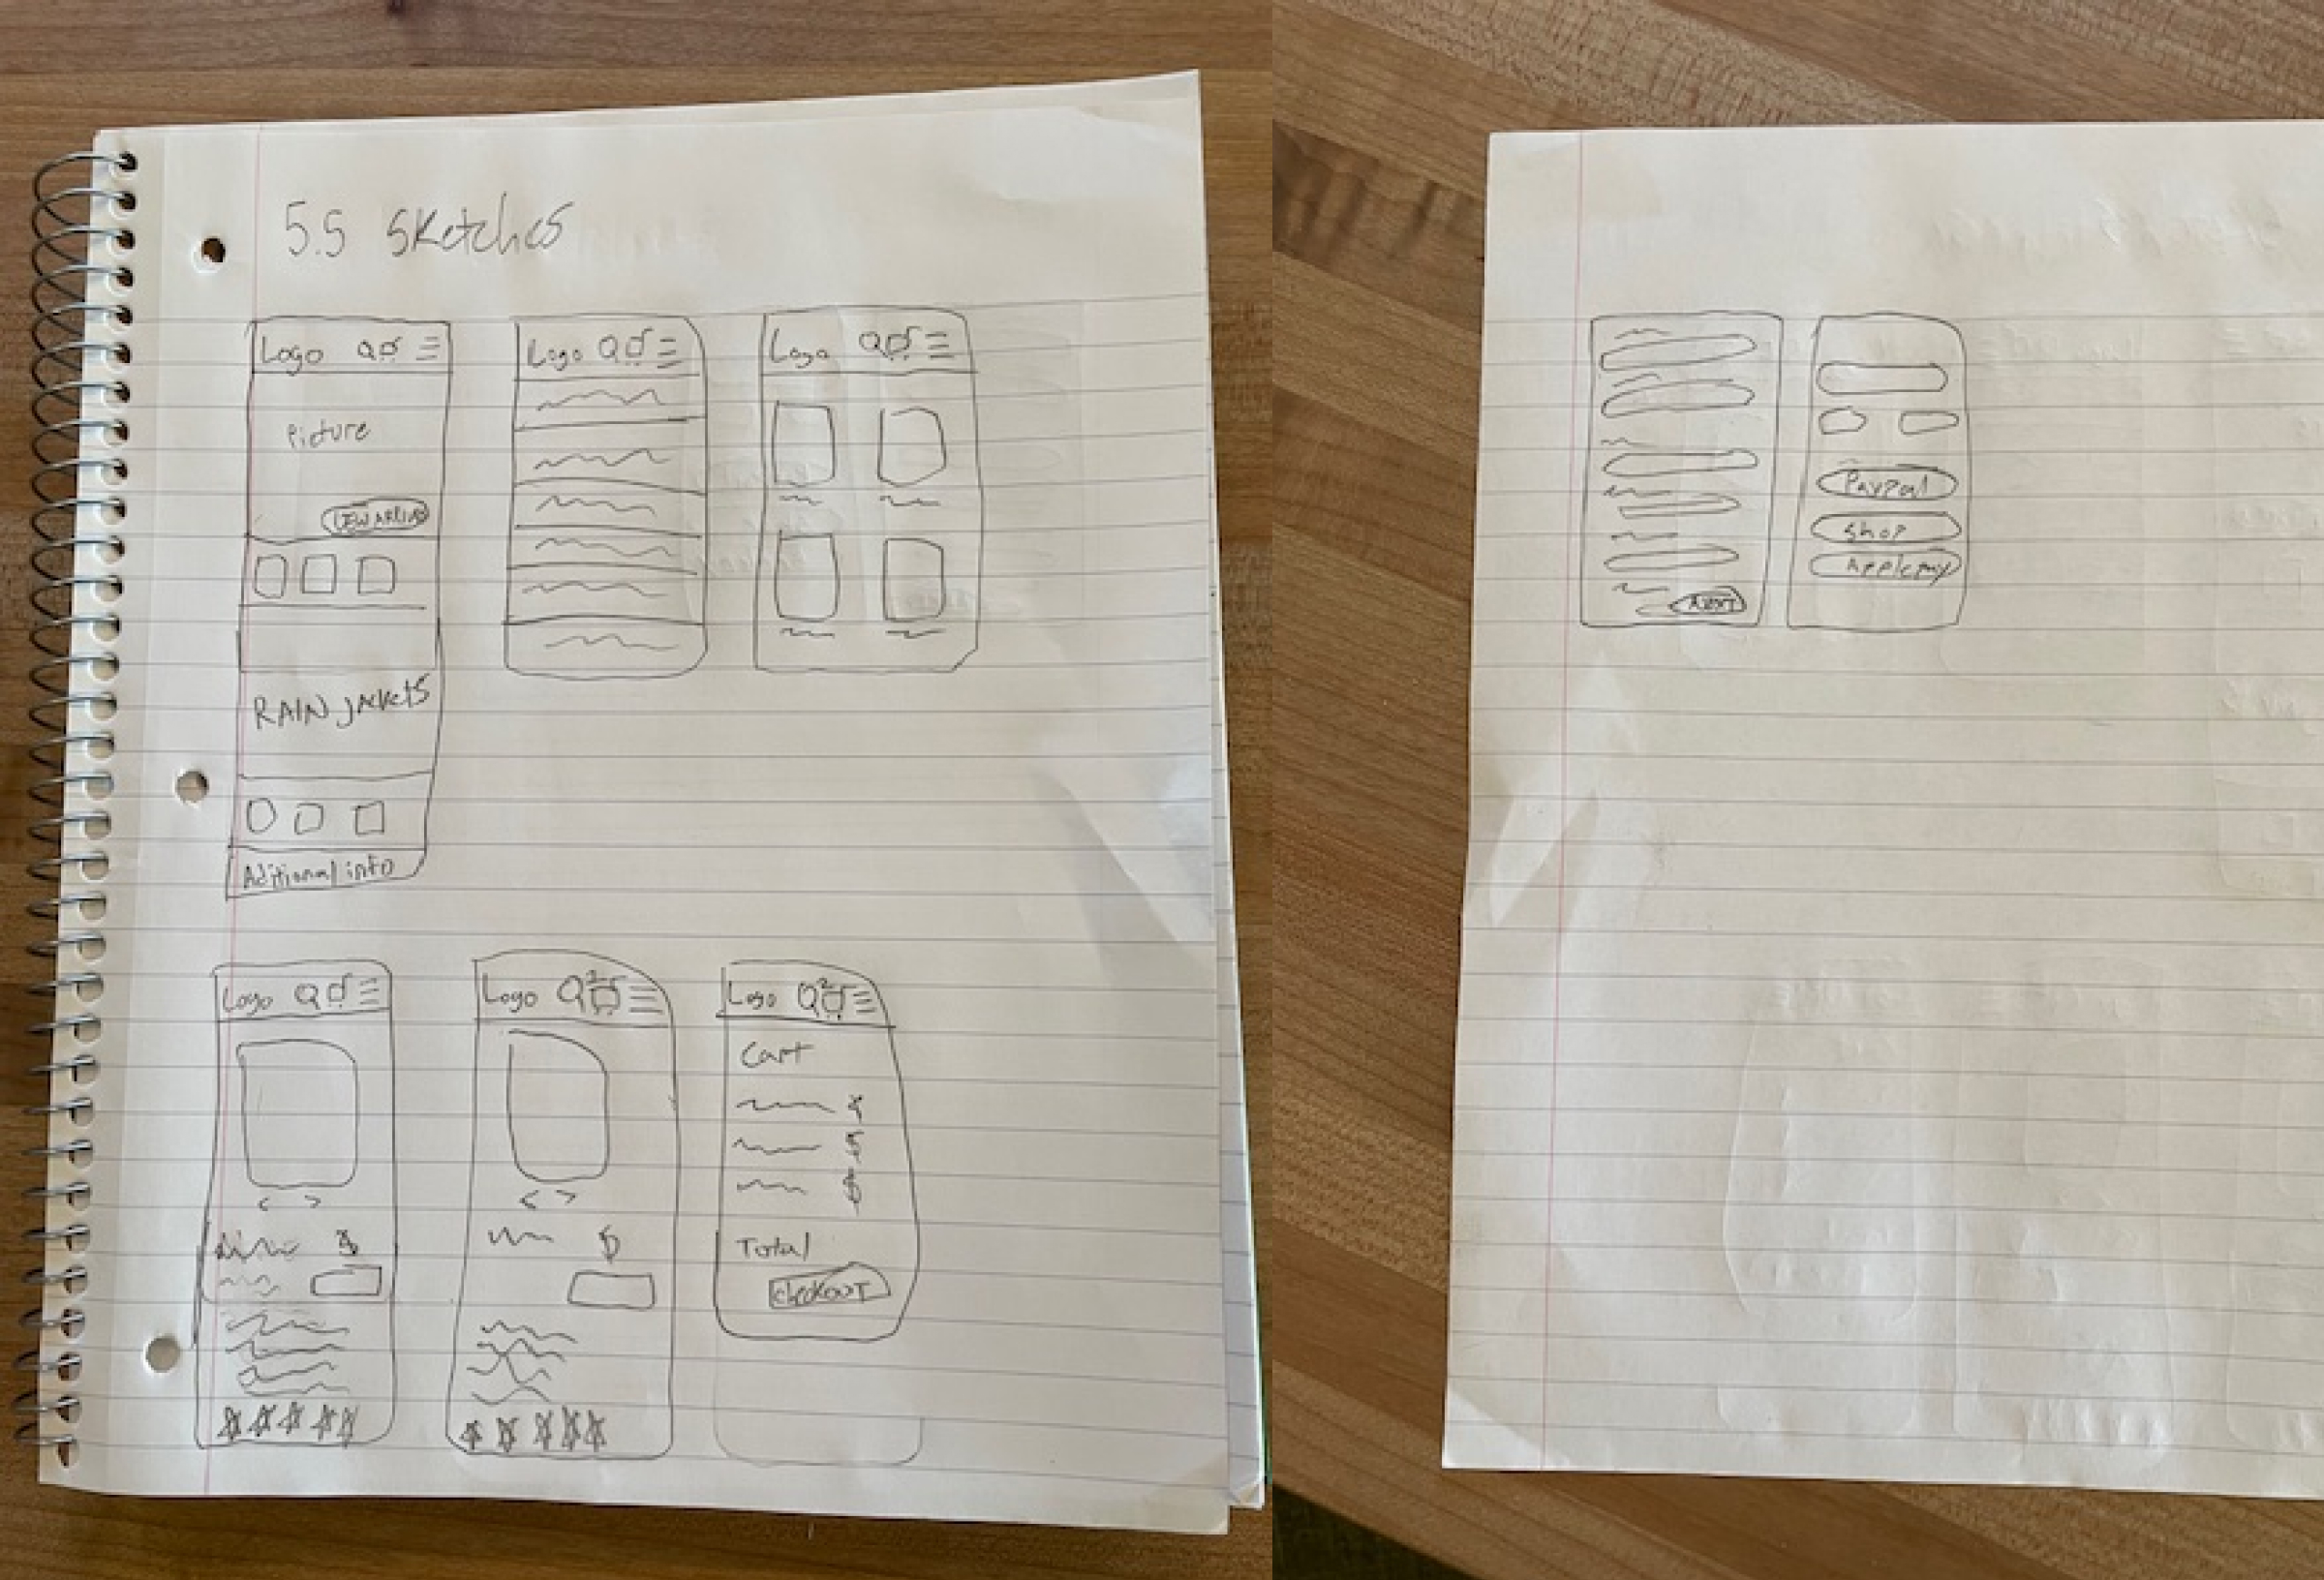 5.5 Sketches
Logo
Picture
NEW ARRIVAL
RAIN jackets
Aditional info
Logo
Logo
Logo
$
Logo
2
$
Logo
2
Cart
$
$
$
Total
checkout
Next
Paypal
Shop
Applepay